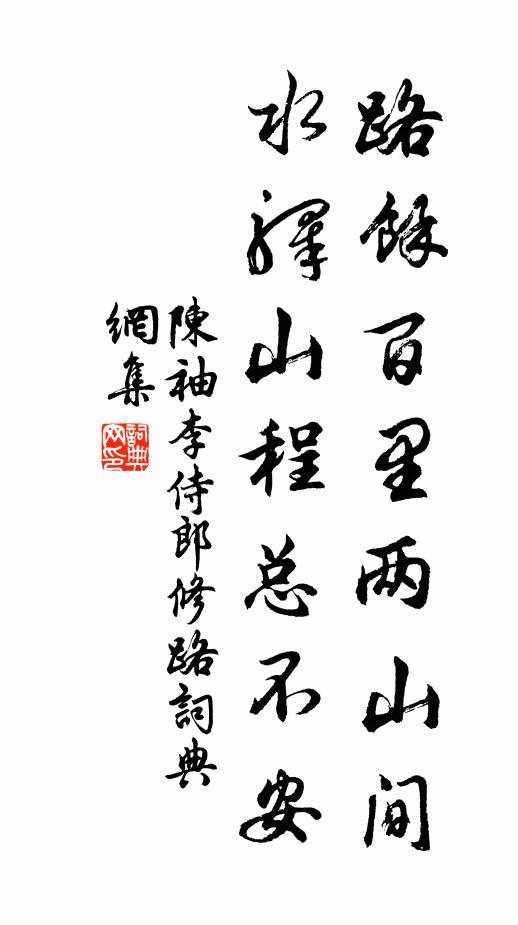 路餘百里两山间
水驛山程总不安
陳袖李侍郎修路詞典
網集
詞典
网印